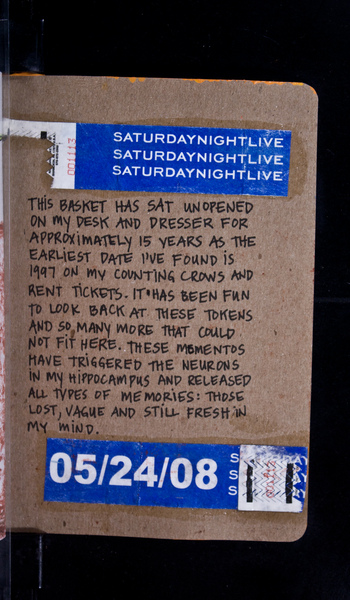 001113
SATURDAYNIGHTLIVE
SATURDAYNIGHTLIVE
SATURDAYNIGHTLIVE
THIS BASKET HAS SAT UNOPENED
ON MY DESK AND DRESSER FOR
APPROXIMATELY 15 YEARS AS THE
EARLIEST DATE I'VE FOUND IS
1997 ON MY COUNTING CROWS AND
RENT TICKETS. IT HAS BEEN FUN
TO LOOK BACK AT THESE TOKENS
AND SO MANY MORE THAT COULD
NOT FIT HERE. THESE MEMENTOS
HAVE TRIGGERED THE NEURONS
IN MY HIPPOCAMPUS AND RELEASED
ALL TYPES OF MEMORIES: THOSE
LOST, VAGUE AND STILL FRESH IN
MY MIND.
05/24/08
S
S
S